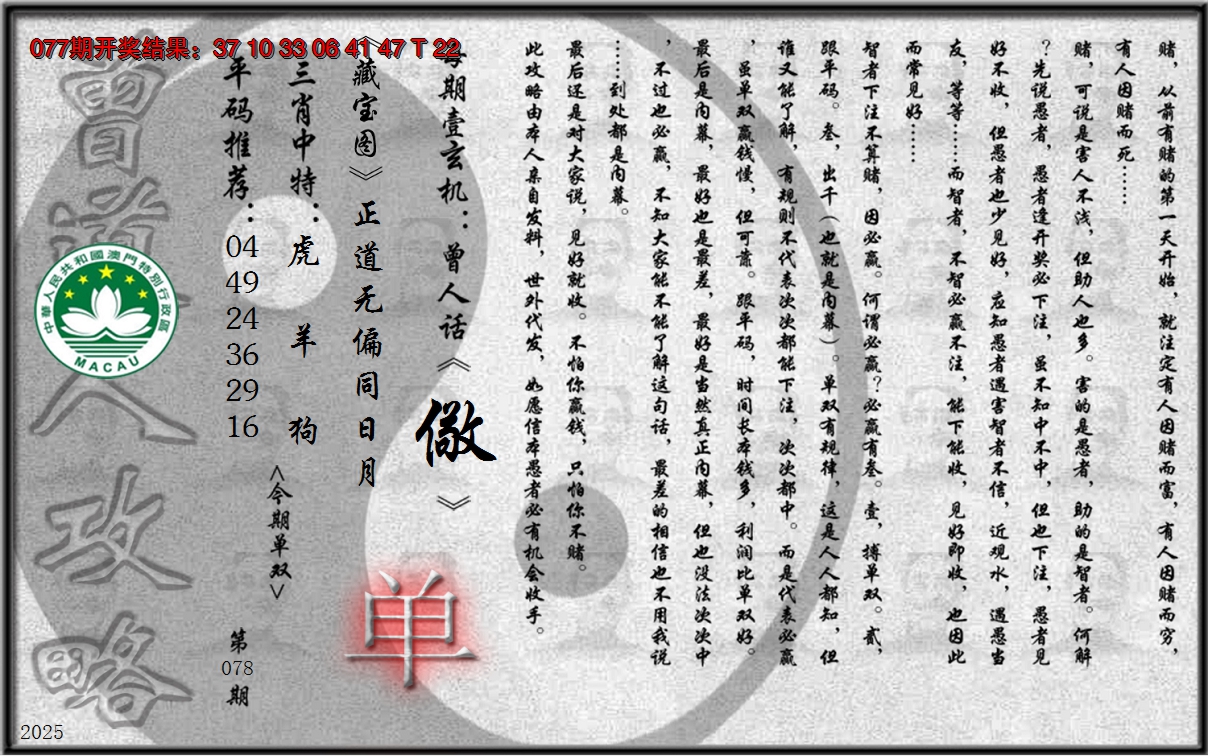 077期开奖结果：37 10 33 06 41 47 T 22
赌，从前有赌的第一天开始，就注定有人因赌而富，有人因赌而穷，
有人因赌而死……
赌，可说是害人不浅，但助人也多。害的是愚者，助的是智者。何解
？先说愚者，愚者逢开奖必下注，虽不知中不中，但也下注，愚者见
好不收，但愚者也少见好，应知愚者遇害智者不信，近观水，遇愚当
友，等等……而智者，不智必赢不注，能下能收，见好即收，也因此
而常见好……
智者下注不算赌，因必赢。何谓必赢？必赢有叁。壹，搏单双。贰，
跟平码。叁，出千（也就是内幕）。单双有规律，这是人人都知，但
谁又能了解，有规则不代表次次都能下注，次次都中。而是代表必赢
，虽单双赢钱慢，但可靠。跟平码，时间长本钱多，利润比单双好。
最后是内幕，最好也是最差，最好是当然真正内幕，但也没法次次中
，不过也必赢，不知大家能不能了解这句话，最差的相信也不用我说
……到处都是内幕。
最后还是对大家说，见好就收。不怕你赢钱，只怕你不赌。
此攻略由本人亲自发料，世外代发，如愿信本愚者必有机会收手。
每期壹玄机：曾人话《儆》
《藏宝图》正道无偏同日月
单
三肖中特：虎 羊 狗
<今期单双>
平码推荐：04 49 24 36 29 16
第078期
曾道人攻略
中華人民共和國澳門特別行政區
MACAU
2025